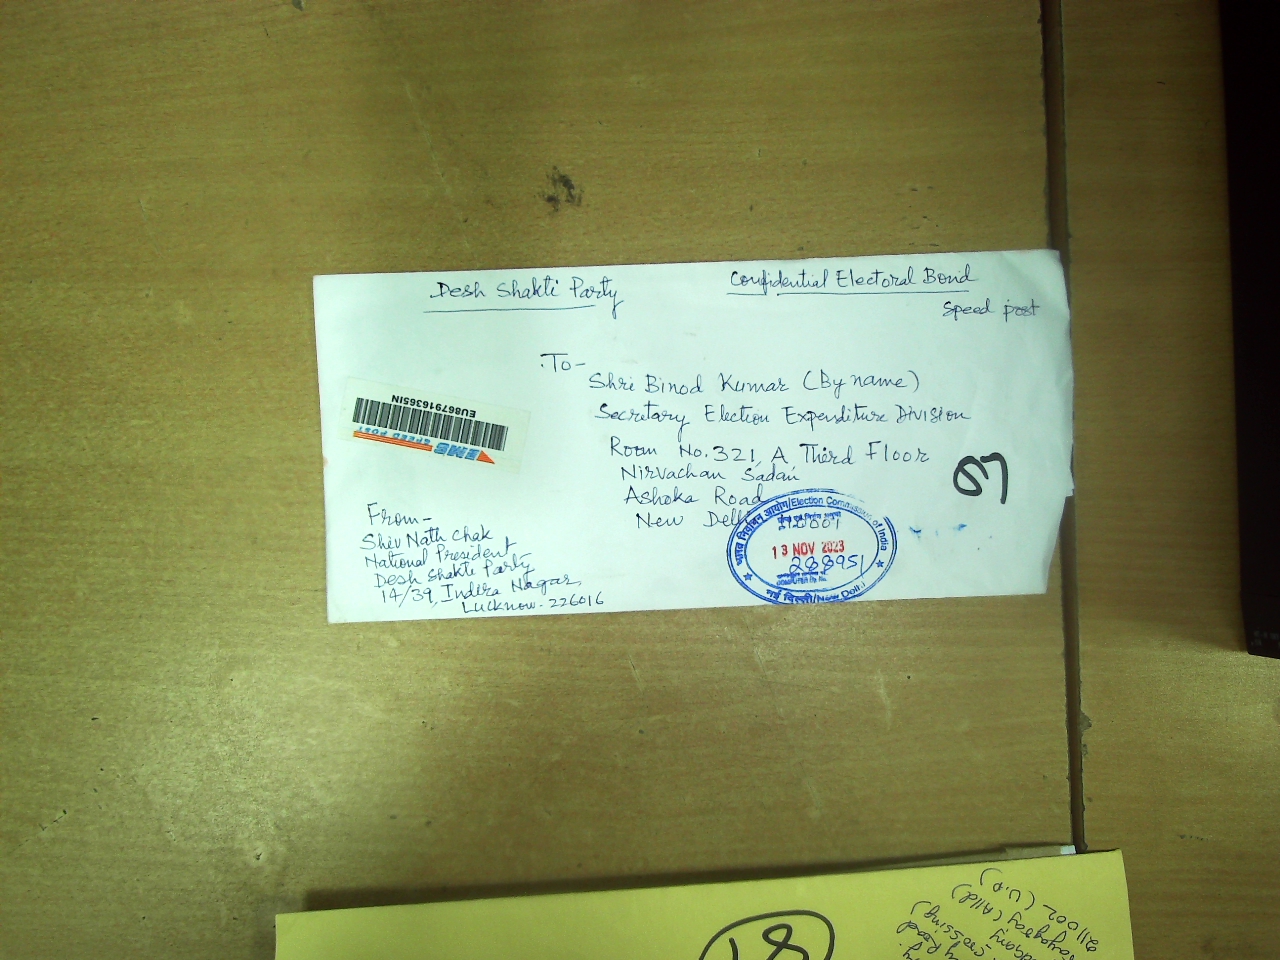 Desh Shakti Party
Confidential Electoral Bond
Speed post
To-
Shri Binod Kumar (By name)
Secretary Election Expenditure Division
Room No. 321, A Third Floor
Nirvachan Sadan
Ashoka Road
New Delhi
110001
EU867916365IN
EMS SPEED POST
From-
Shiv Nath Chak
National President
Desh Shakti Party
14/39, Indira Nagar,
Lucknow- 226016
भारत निर्वाचन आयोग/Election Commission of India
13 NOV 2023
288951
नई दिल्ली/New Delhi
18
Crossing)
(Alld)
211002 (U.P)